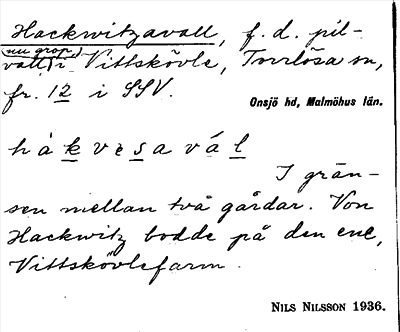 Hackwitzavall, f. d. pil-
(nu grop)
vall i Vittskövle, Torrlösa sn,
fr. 12 i SSV.
Onsjö hd, Malmöhus län.
håkvesavál
I grän-
sen mellan två gårdar. Von
Hackwitz bodde på den ene,
Vittskövlefarm.
NILS NILSSON 1936.